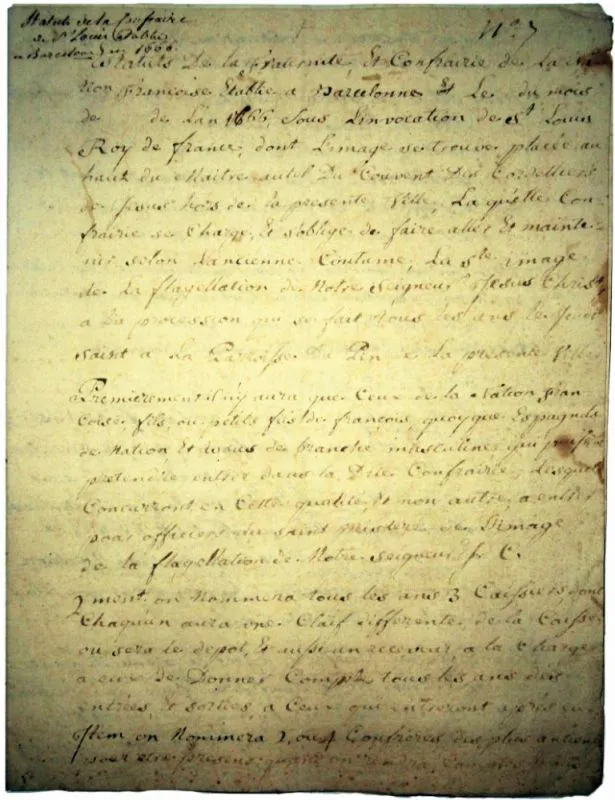 Statuts de la Confrairie
de St Louis Etablie
a Barcelonne en 1666
N° 7
Statuts De la fraternité, Et Confrairie de La Na
tion francoise Etablie a Barcelonne Et Le du mois
de de Lan 1666, Sous Linvocation de St Louis
Roy de france, dont Limage se trouve placée au
haut du Maitre autel Du Couvent Des Cordelliers
de Jesus hors de la presente Ville, La qu'elle Con
frairie se Charge, Et s'oblige de faire aller Et mainte
nir selon Lancienne Coutume, La Ste image
de La flagellation de Notre Seigneur Jesus Christ
a La procession qui se fait tous les ans le Jeudi
saint a La Paroisse Du Pin de la presente Ville
Premierement il n'y aura que Ceux de la Nation fran
coise, fils ou petits fils de francois, quoyque Espagnols
de Nation Et de branche masculine, qui puissent
pretendre entrer dans la Dite Confrairie, Lesquels
Concurront en Cette qualité, Et non autre, a entrer
pour officiers du saint Mistere de L'image
de la flagellation de Notre seigneur J. C.
2ment on Nommera tous les ans 3 Caissiers dont
Chaquun aura une Clef differente de la Caisse
ou sera le depot, Et aussi un receveur, a la Charge
a eux de Donner Compte tous les ans des
entrées, Et sorties, a Ceux qui entreront apres eux
Item, on Nommera 2, ou 4 Confréres des plus anciens
pour etre presens quand on rendra